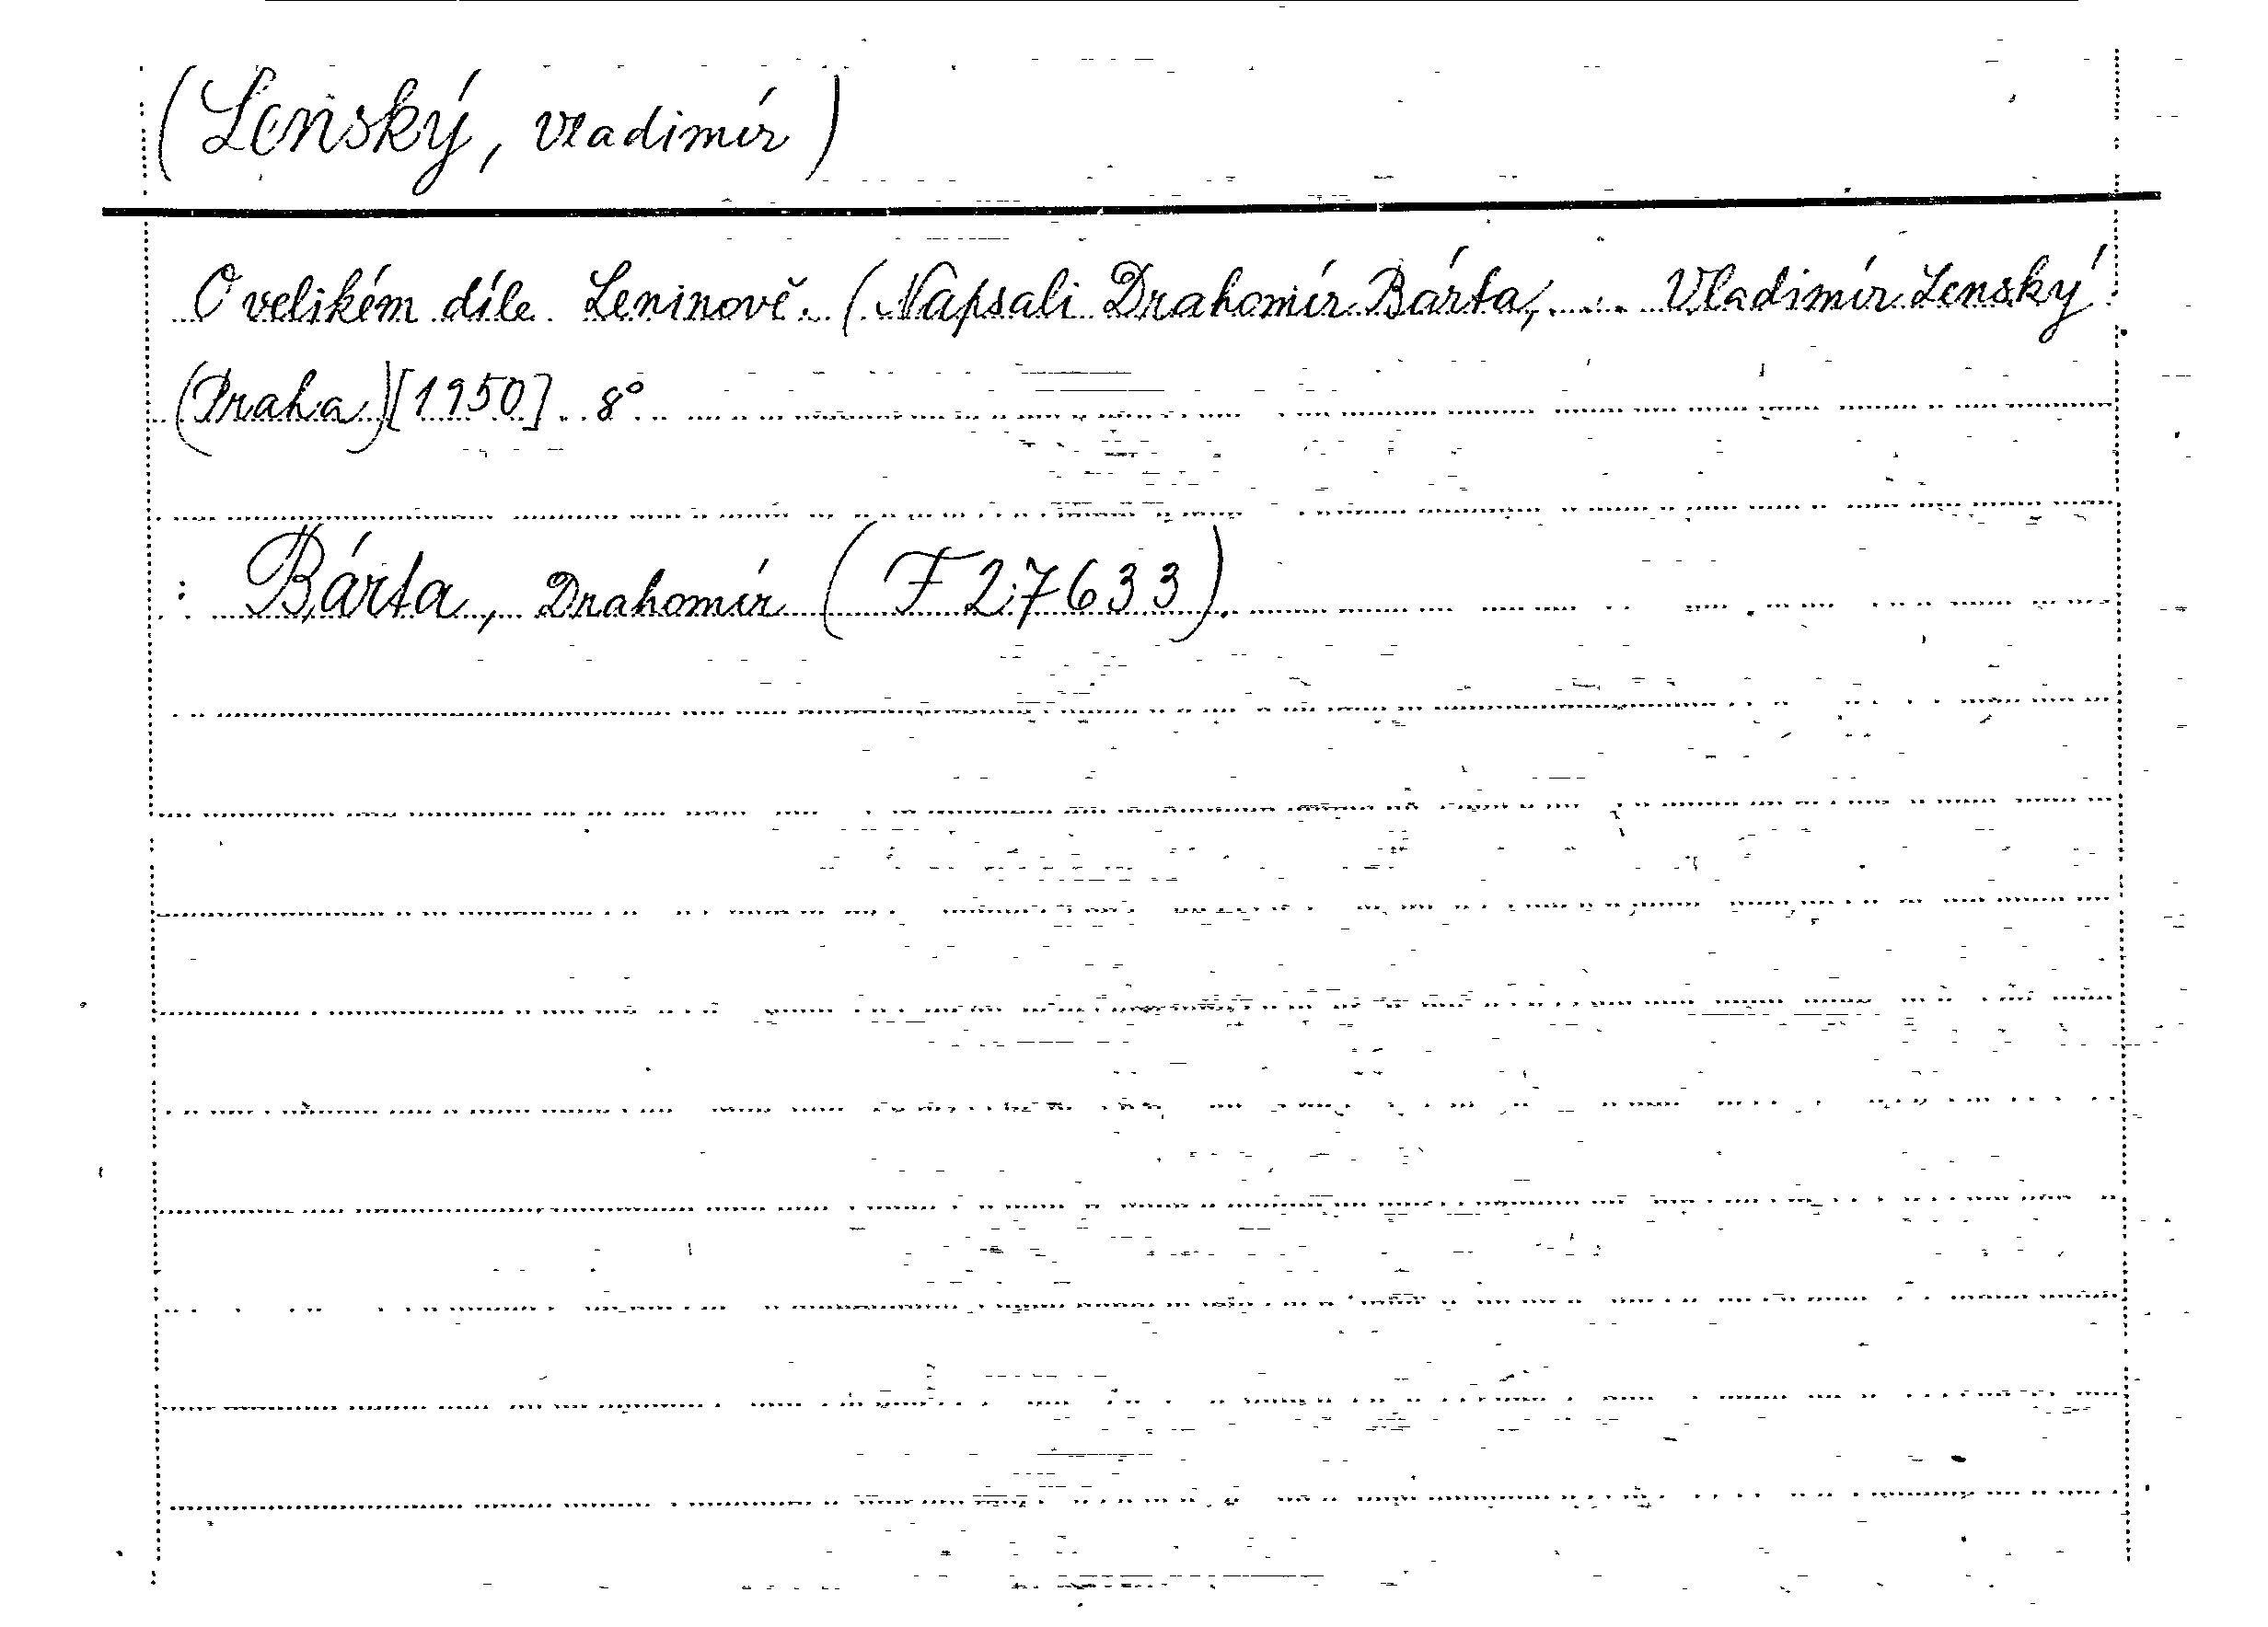 (Lenský, Vladimír)
O velikém díle Leninově. (Napsali Drahomír Bárta, ... Vladimír Lenský
(Praha)[1950]. 8°
: Bárta, Drahomír (F 27633).